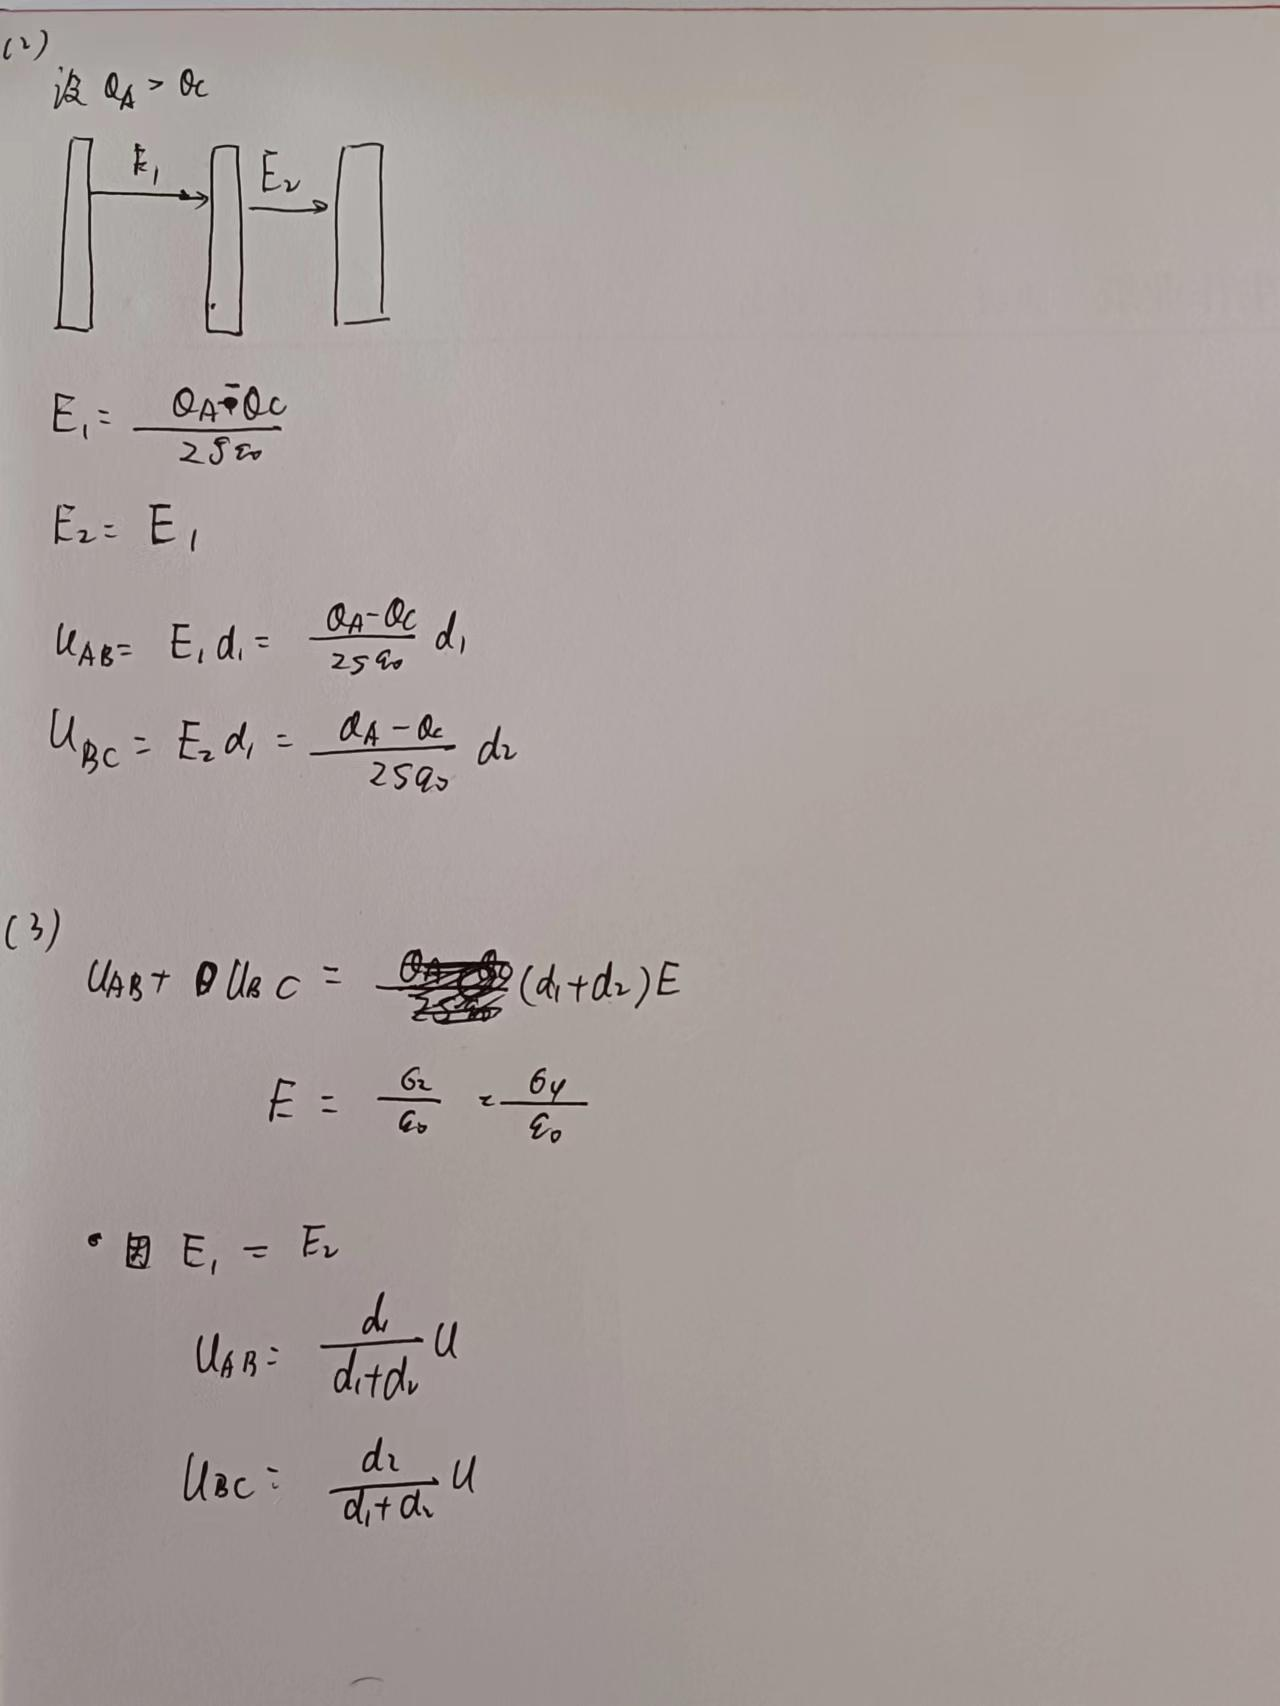 (2)
设 QA > QC
E₁ E₂
E₁ = (QA - QC) / (2Sε₀)
E₂ = E₁
UAB = E₁d₁ = (QA - QC) / (2Sε₀) d₁
UBC = E₂d₁ = (QA - QC) / (2Sε₀) d₂
(3)
UAB + UBC = (d₁+d₂)E
E = σ₂/ε₀ = σ₄/ε₀
因 E₁ = E₂
UAB = d₁/(d₁+d₂) U
UBC = d₂/(d₁+d₂) U